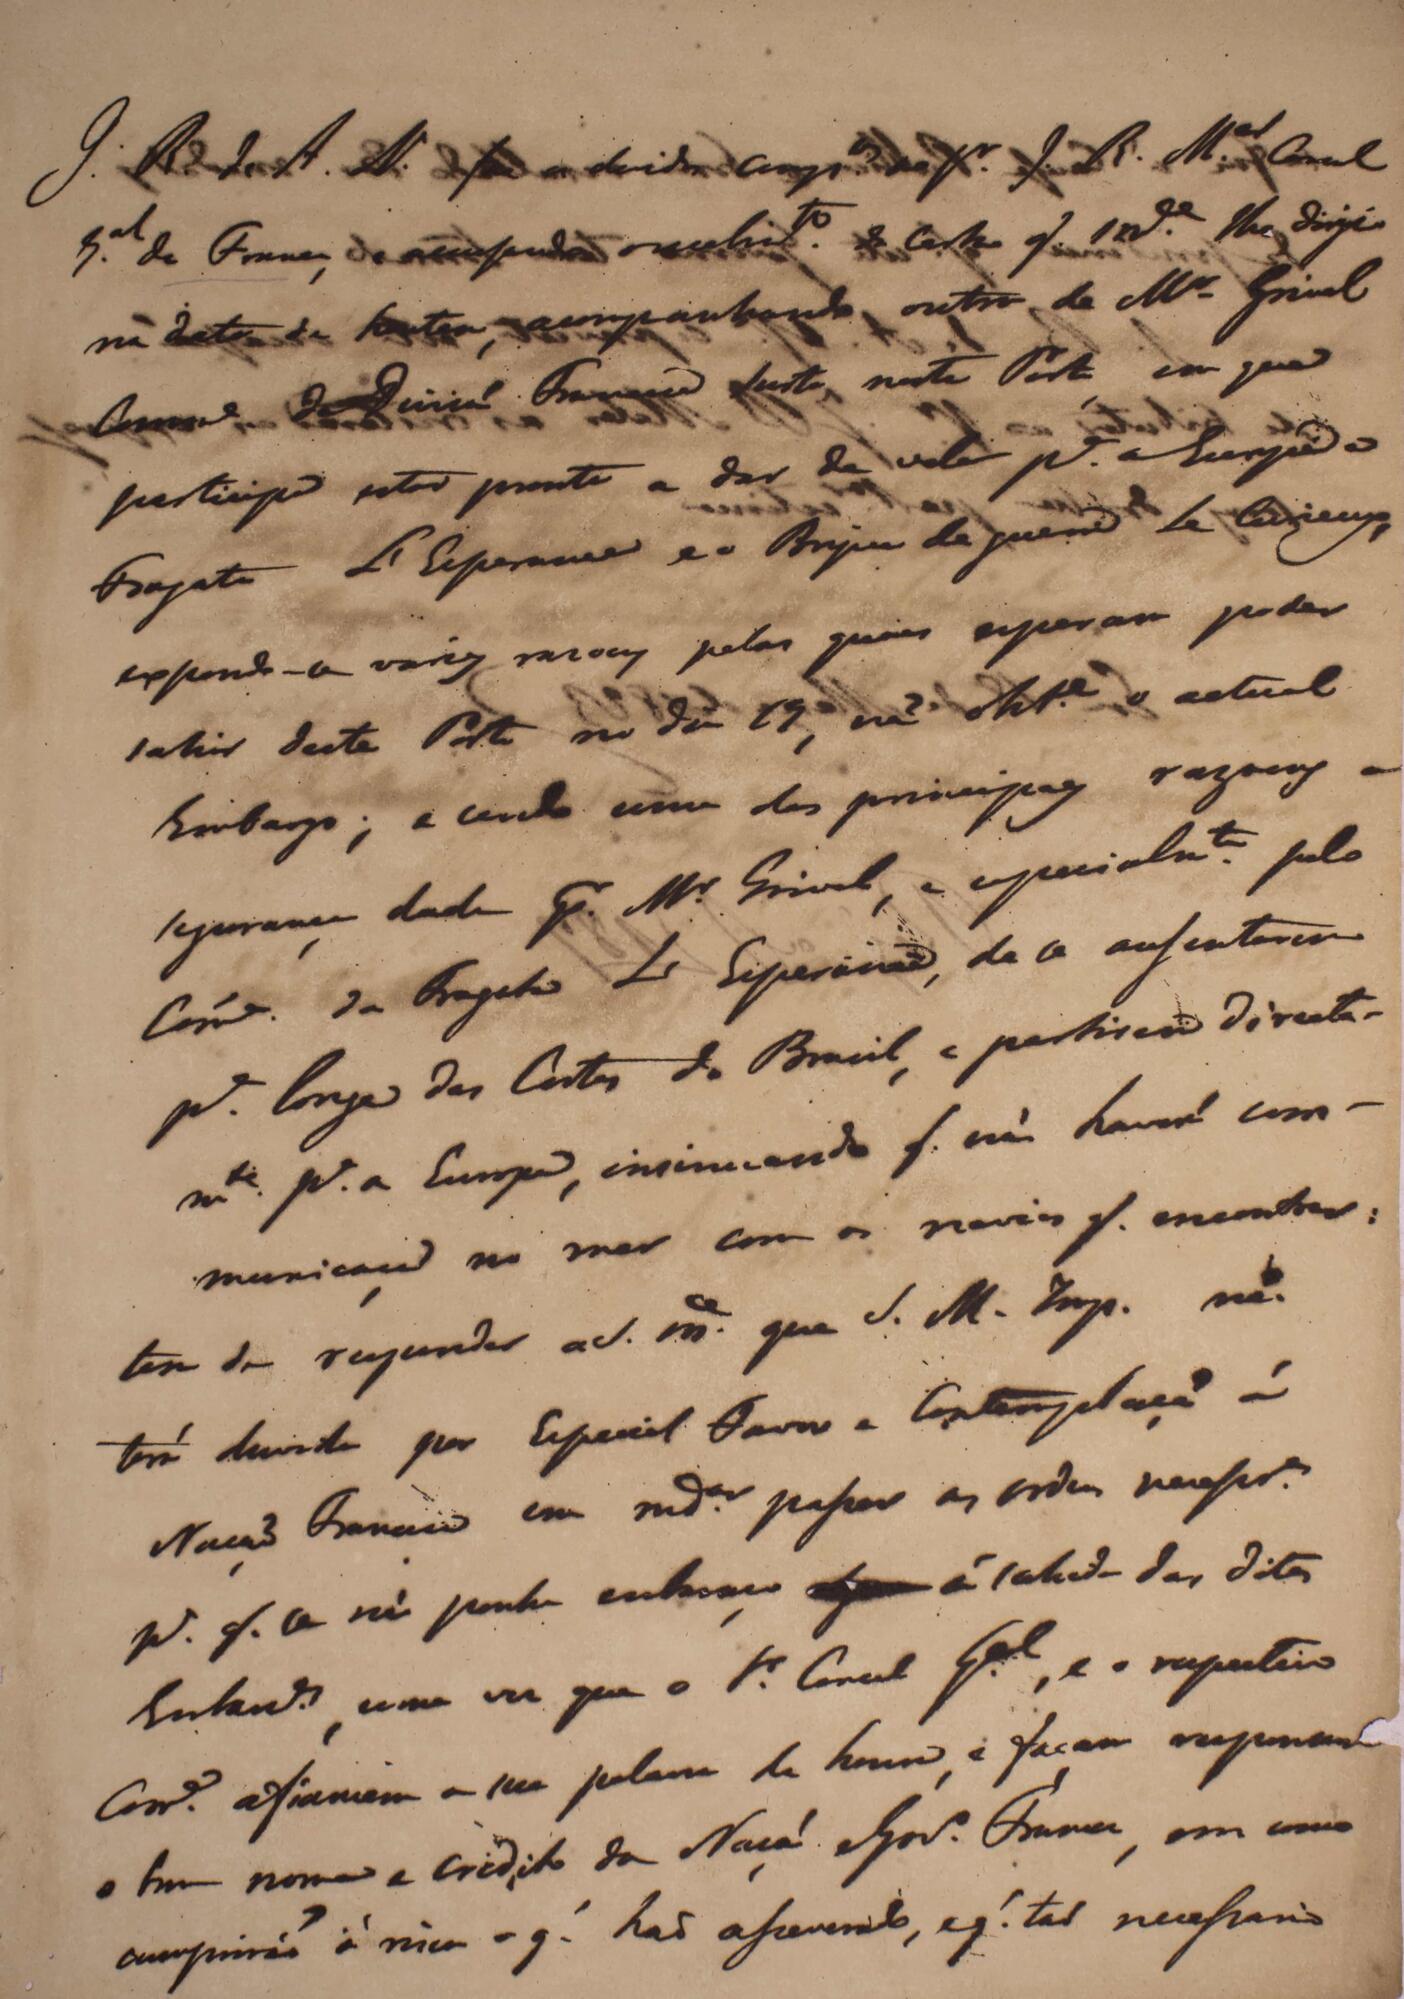 J. B. de A. S. faz os devidos cumpr.tos ao Sr. J. B. M.el Consul
G.al da França, e accusando o recebim.to da Carta q. V. S.ª lhe dirigio
na data de hontem, acompanhando outra de Mr. Grivel
Comm.e da Divizão Franceza surta neste Porto, em que
participa estar prompta a dar de vela p.ª a Europa a
Fragata L'Esperance e o Brigue de guerra Le Curieux,
expondo-se varias razoens pelas quaes esperam poder
sahir deste Porto no dia 19, não obst.e o actual
Embargo; e sendo uma das principaes razoens a
segurança dada p.r Mr. Grivel, e especialm.te pelo
Com.e da Fragata L'Esperance, de se ausentarem
p.ª longe das Costas do Brasil, e partirem directa-
m.te p.ª a Europa, insinuando q. não haverá com-
municação no mar com os navios q. encontrar:
tem de responder a S. M.ce que S. M. Imp. não
terá duvida por Especial Favor e Contemplação á
Nação Franceza em md.ar passar as ordens necessr.as
p.ª q. se não ponha embaraço á sahida das ditas
Embarc.s, uma vez que o Sr. Consul G.al, e o respectivo
Com.e afiancem a sua palavra de honra, e façam responsavel
o bom nome e credito da Nação e Gov.o Francez, em como
cumprirão á risca o q. hão asseverado, e q. tão necessario